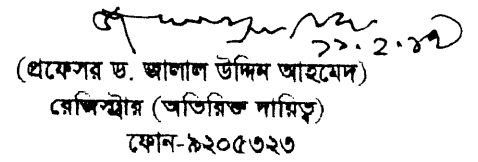 ২১.২.১৭
(প্রফেসর ড. জালাল উদ্দিন আহমেদ)
রেজিস্ট্রার (অতিরিক্ত দায়িত্ব)
ফোন-৯২০৫৩২৩